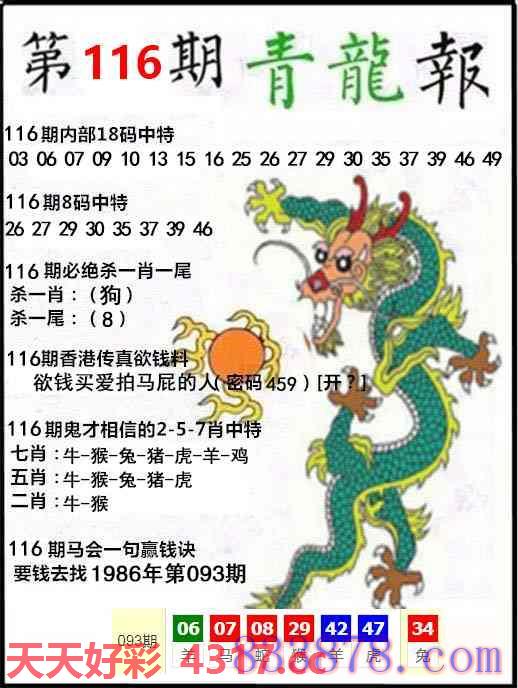 第116期青龍報
116期内部18码中特
03 06 07 09 10 13 15 16 25 26 27 29 30 35 37 39 46 49
116期8码中特
26 27 29 30 35 37 39 46
116 期必绝杀一肖一尾
杀一肖：（狗）
杀一尾：（8）
116期香港传真欲钱料
欲钱买爱拍马屁的人（密码459）[开？]
116期鬼才相信的2-5-7肖中特
七肖：牛-猴-兔-猪-虎-羊-鸡
五肖：牛-猴-兔-猪-虎
二肖：牛-猴
116 期马会一句赢钱诀
要钱去找1986年第093期
093期 06 07 08 29 42 47 34
羊 马 蛇 猴 羊 虎 兔
天天好彩 4317.cc